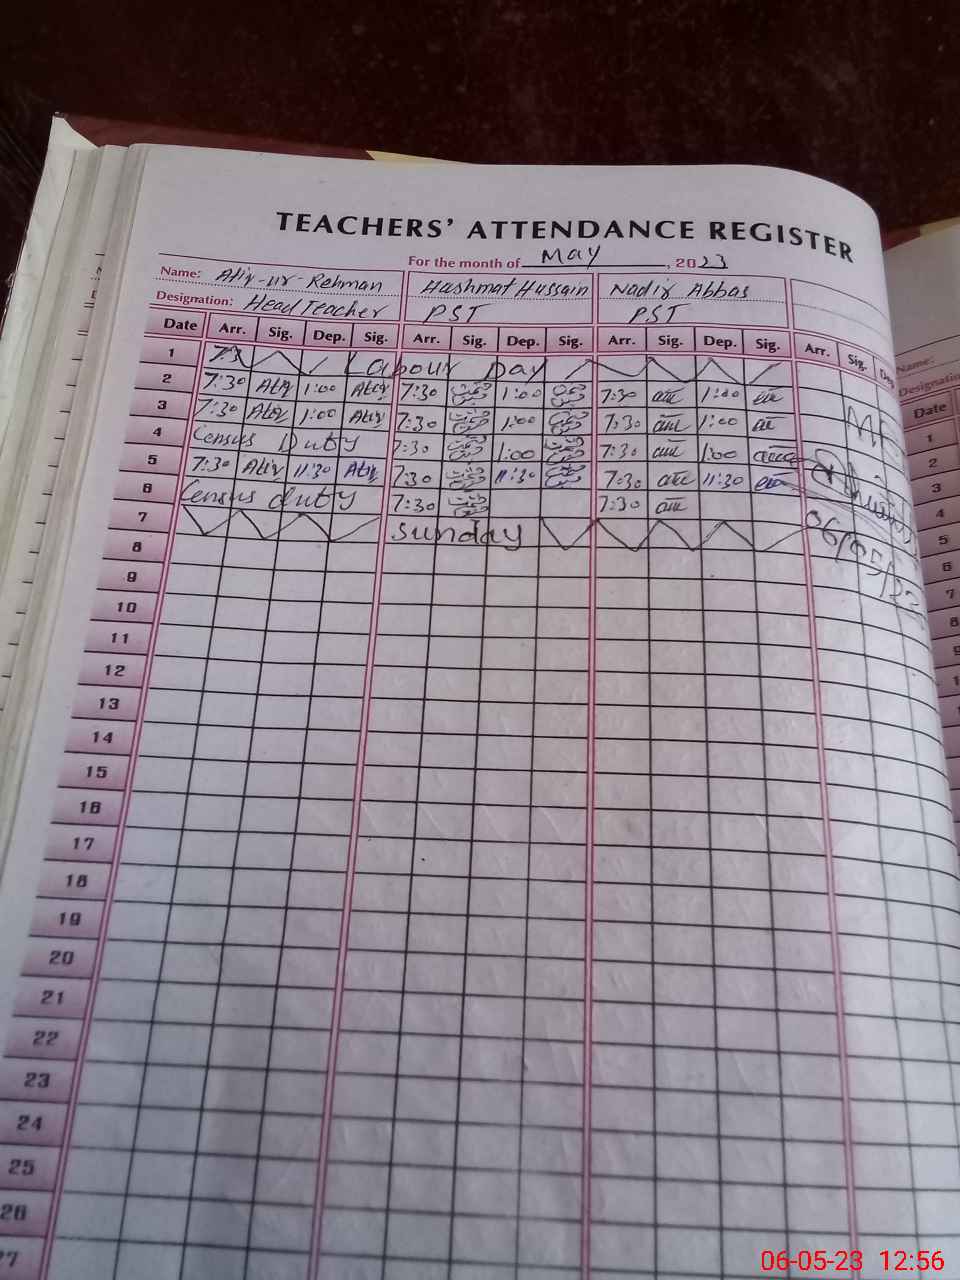 TEACHERS' ATTENDANCE REGISTER
For the month of May, 2023
Name: Atiq-ur-Rehman Hashmat Hussain Nadir Abbas
Designation: Head Teacher PST PST
Date Arr. Sig. Dep. Sig. Arr. Sig. Dep. Sig. Arr. Sig. Dep. Sig. Arr. Sig.
1 Labour Day
2 7:30 Atiq 1:00 Atiq 7:30 1:00 7:30 1:00
3 7:30 Atiq 1:00 Atiq 7:30 1:00 7:30 1:00
4 Census Duty 7:30 1:00 7:30 1:00
5 7:30 Atiq 11:30 Atiq 7:30 11:30 7:30 11:30
6 Census duty 7:30 7:30
7 Sunday
06/05/23
8
9
10
11
12
13
14
15
16
17
18
19
20
21
22
23
24
25
26
Name:
Date
1
2
3
4
5
6
7
8
06-05-23 12:56